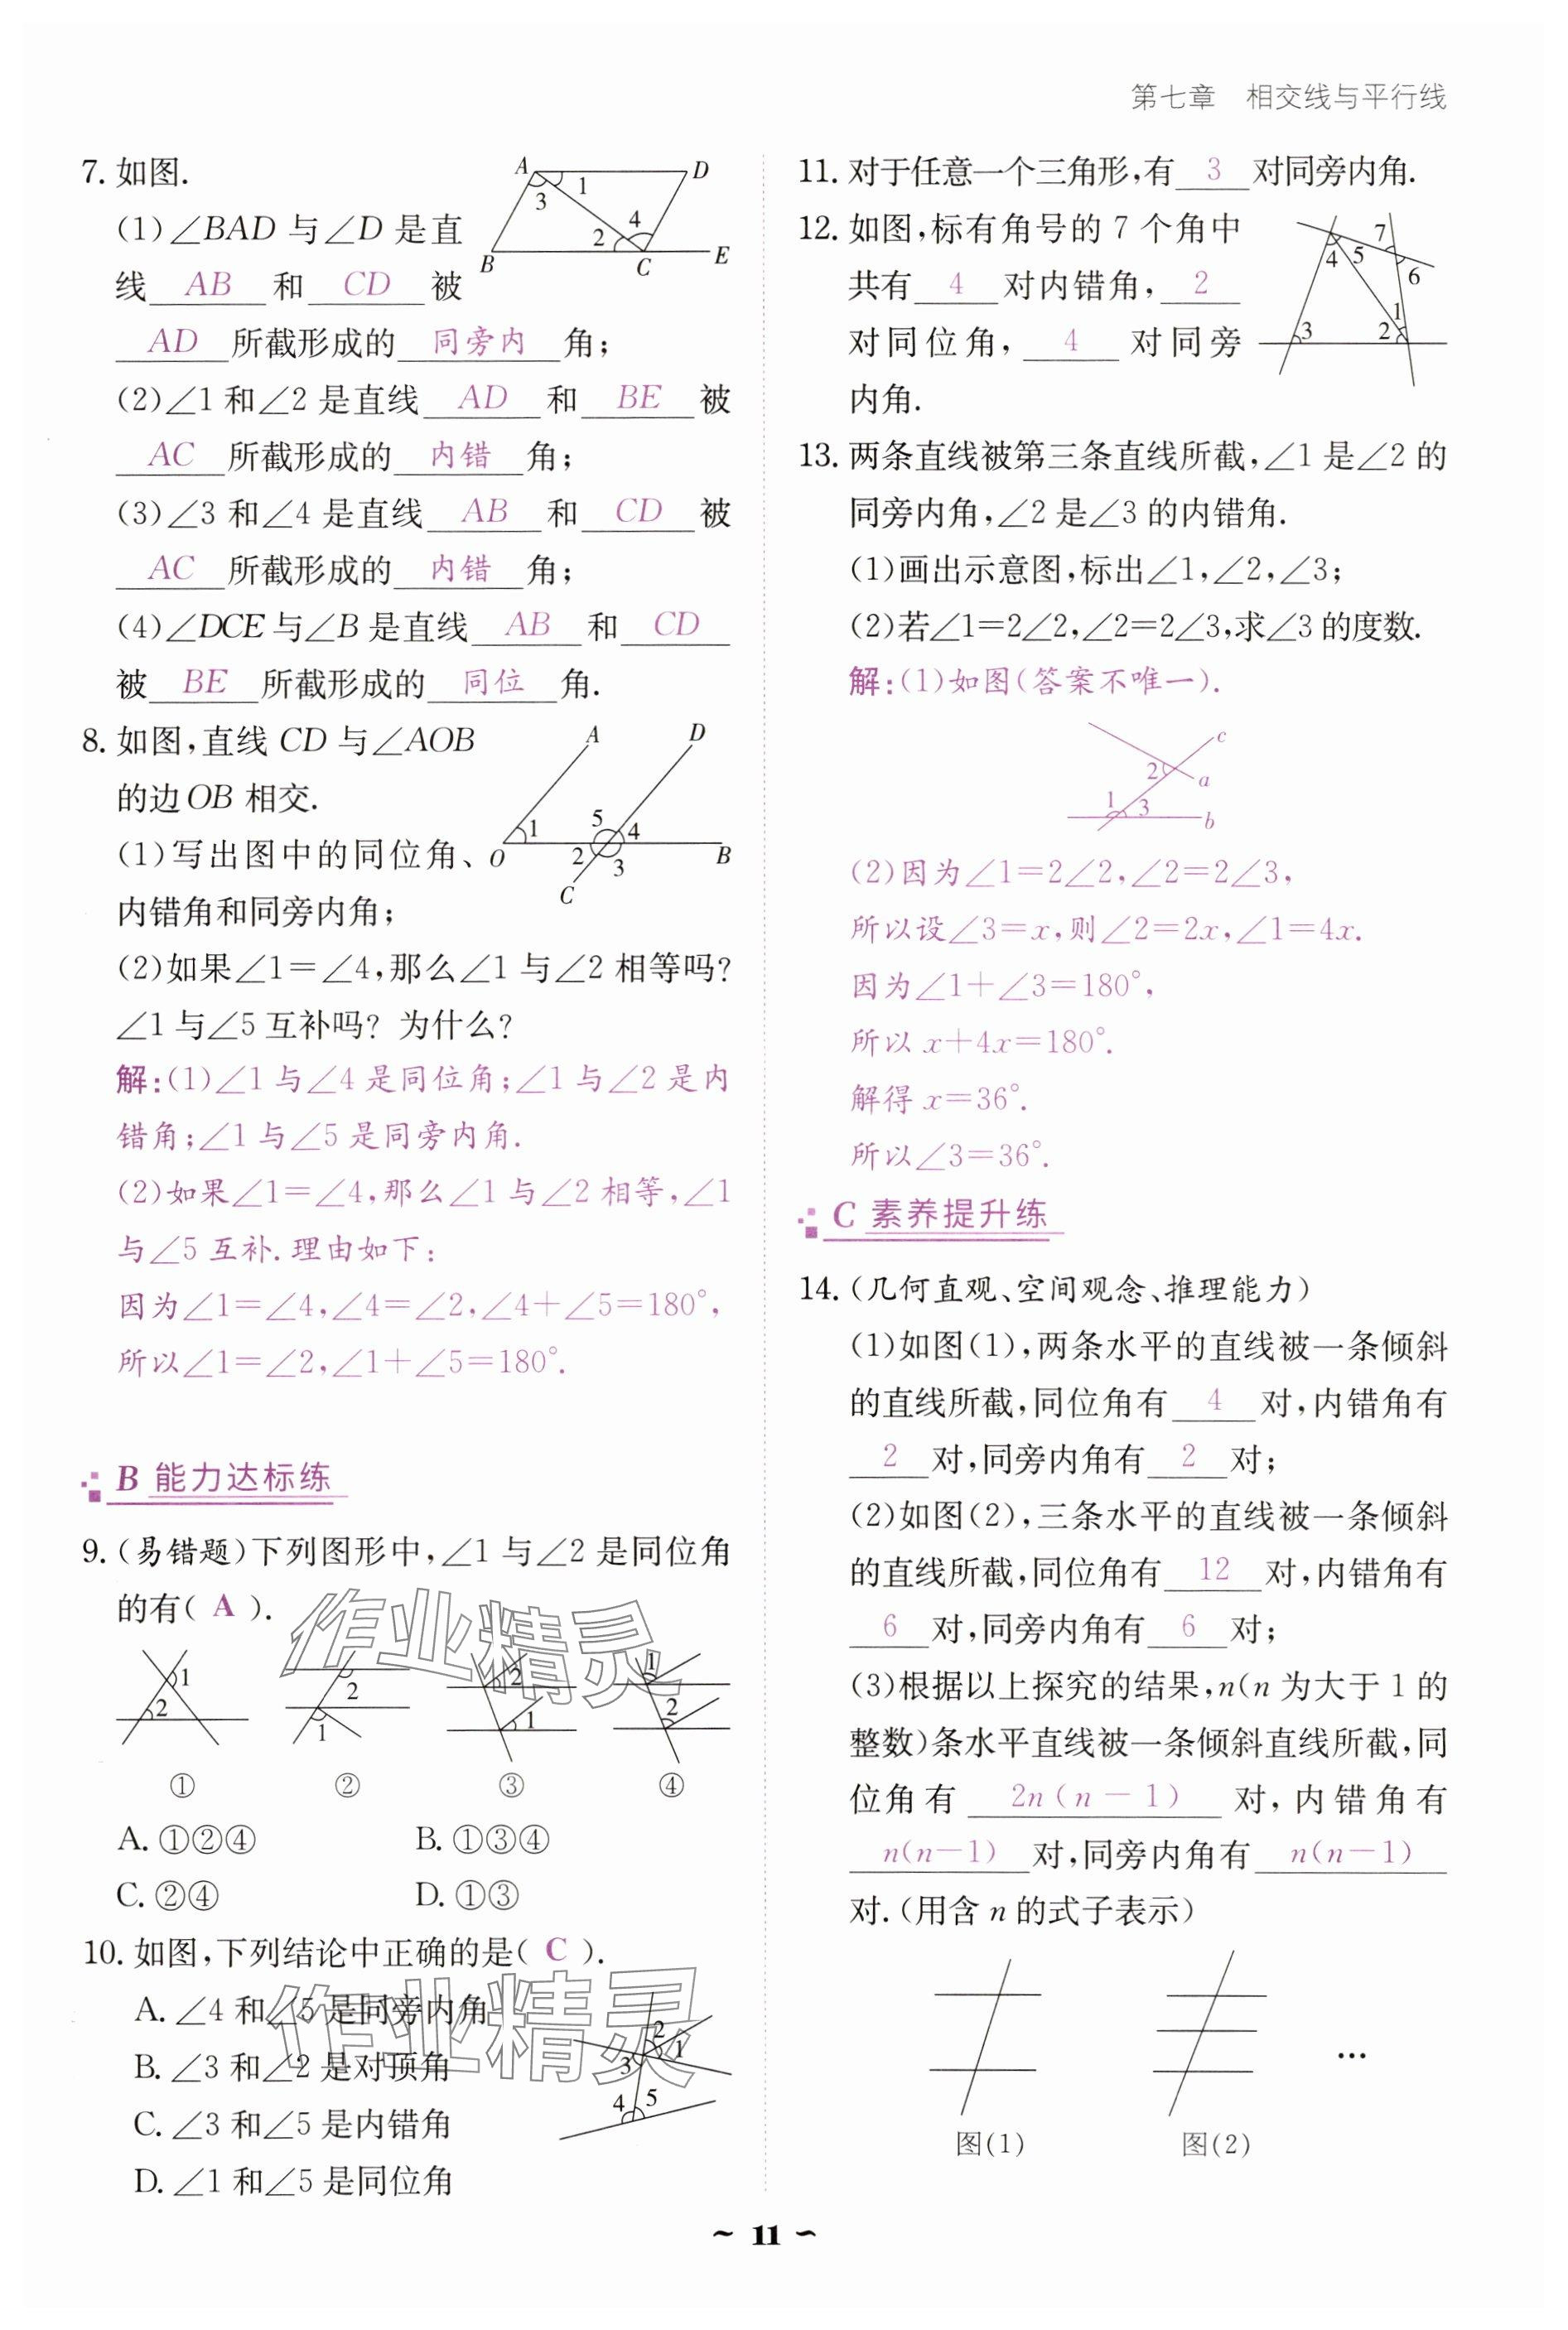 第七章 相交线与平行线
7. 如图.
(1)∠BAD 与∠D 是直
线 AB 和 CD 被
AD 所截形成的 同旁内 角;
(2)∠1 和∠2 是直线 AD 和 BE 被
AC 所截形成的 内错 角;
(3)∠3 和∠4 是直线 AB 和 CD 被
AC 所截形成的 内错 角;
(4)∠DCE 与∠B 是直线 AB 和 CD
被 BE 所截形成的 同位 角.
A D 1 3 4 2 B C E
8. 如图,直线 CD 与∠AOB
的边 OB 相交.
(1)写出图中的同位角、
内错角和同旁内角;
(2)如果∠1=∠4,那么∠1 与∠2 相等吗?
∠1 与∠5 互补吗? 为什么?
A D 5 1 4 O 2 3 B C
解:(1)∠1 与∠4 是同位角;∠1 与∠2 是内
错角;∠1 与∠5 是同旁内角.
(2)如果∠1=∠4,那么∠1 与∠2 相等,∠1
与∠5 互补. 理由如下:
因为∠1=∠4,∠4=∠2,∠4+∠5=180°,
所以∠1=∠2,∠1+∠5=180°.
B 能力达标练
9. (易错题)下列图形中,∠1 与∠2 是同位角
的有( A ).
1 2 2 1 2 1 1 2
① ② ③ ④
A. ①②④ B. ①③④
C. ②④ D. ①③
10. 如图,下列结论中正确的是( C ).
A. ∠4 和∠5 是同旁内角
B. ∠3 和∠2 是对顶角
C. ∠3 和∠5 是内错角
D. ∠1 和∠5 是同位角
2 1 3 4 5
作业精灵
作业精灵
11. 对于任意一个三角形,有 3 对同旁内角.
12. 如图,标有角号的 7 个角中
共有 4 对内错角, 2
对同位角, 4 对同旁
内角.
7 4 5 6 1 3 2
13. 两条直线被第三条直线所截,∠1 是∠2 的
同旁内角,∠2 是∠3 的内错角.
(1)画出示意图,标出∠1,∠2,∠3;
(2)若∠1=2∠2,∠2=2∠3,求∠3 的度数.
解:(1)如图(答案不唯一).
c 2 a 1 3 b
(2)因为∠1=2∠2,∠2=2∠3,
所以设∠3=x,则∠2=2x,∠1=4x.
因为∠1+∠3=180°,
所以 x+4x=180°.
解得 x=36°.
所以∠3=36°.
C 素养提升练
14. (几何直观、空间观念、推理能力)
(1)如图(1),两条水平的直线被一条倾斜
的直线所截,同位角有 4 对,内错角有
2 对,同旁内角有 2 对;
(2)如图(2),三条水平的直线被一条倾斜
的直线所截,同位角有 12 对,内错角有
6 对,同旁内角有 6 对;
(3)根据以上探究的结果,n(n 为大于 1 的
整数)条水平直线被一条倾斜直线所截,同
位角有 2n(n-1) 对,内错角有
n(n-1) 对,同旁内角有 n(n-1)
对.(用含 n 的式子表示)
…
图(1) 图(2)
~ 11 ~